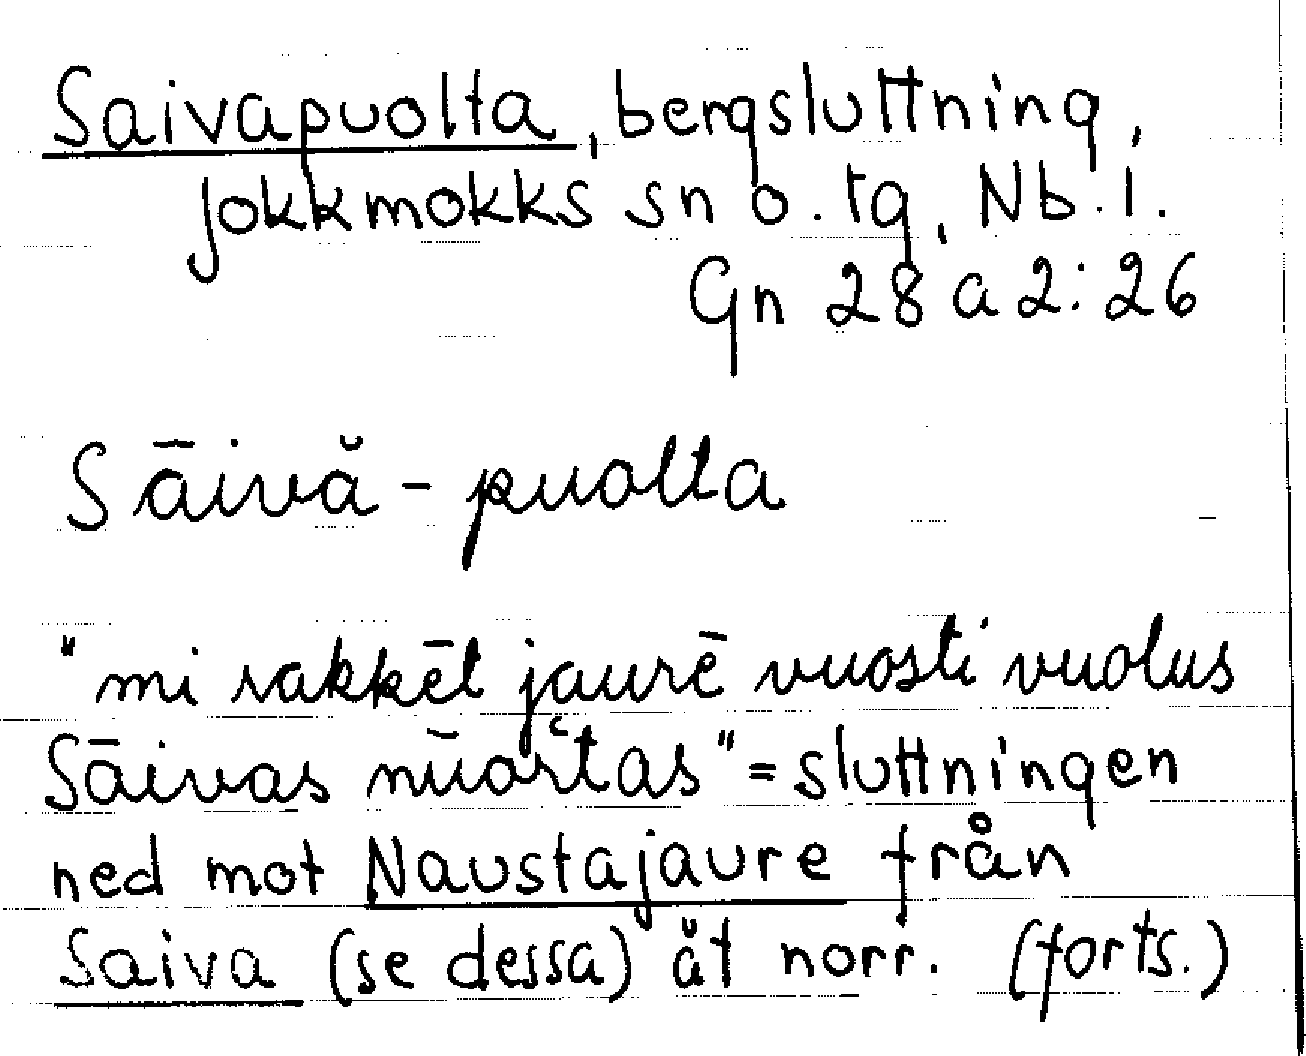 Saivapuolta, bergsluttning,
Jokkmokks sn o. tg, Nb. l.
Gn 28 a 2:26
Sāivă-puolta
"mi rakkēt jaurē vuosti vuolus
Sāivas nūorštas" = sluttningen
ned mot Naustajaure från
Saiva (se dessa) åt norr. (forts.)